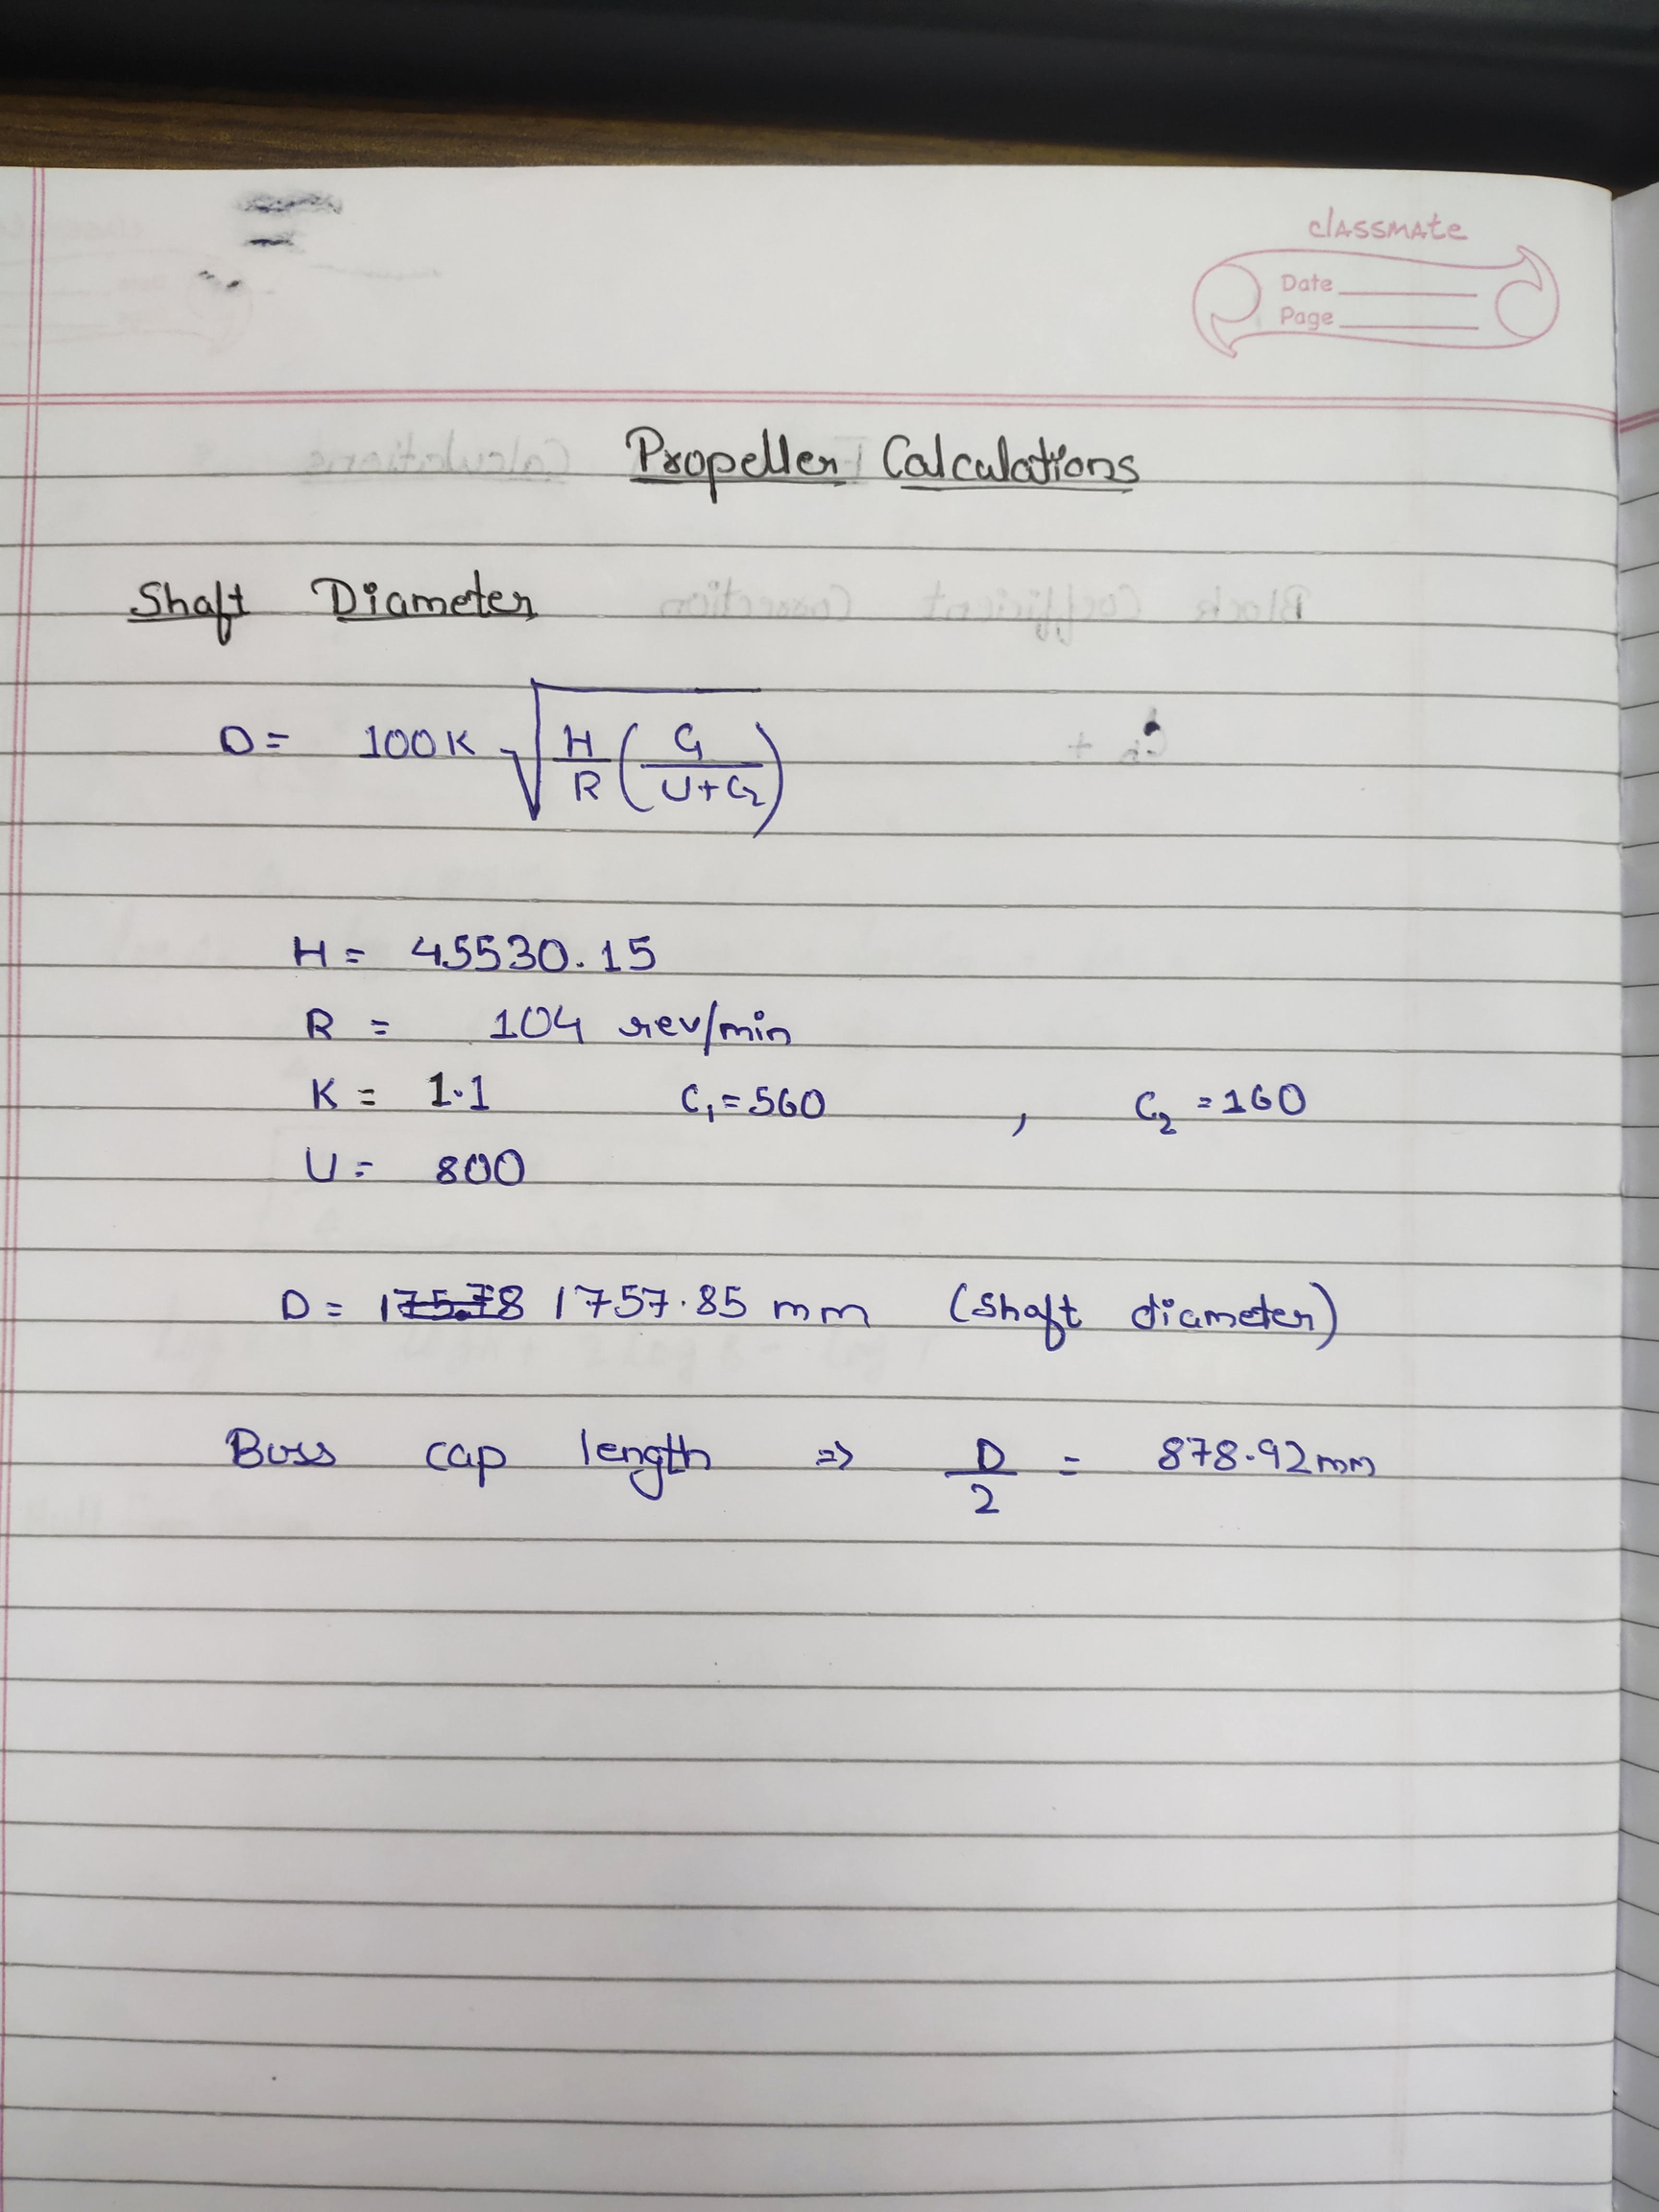 classmate
Date
Page
Propeller Calculations
Shaft Diameter
D = 100K √(H/R (C1/(U+C2)))
H = 45530.15
R = 104 rev/min
K = 1.1 C1 = 560 , C2 = 160
U = 800
D = 175.78 1757.85 mm (Shaft diameter)
Boss cap length => D/2 = 878.92mm